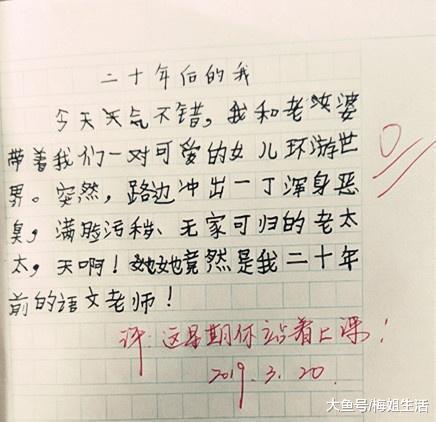 二十年后的我
今天天气不错，我和老婆
带着我们一对可爱的女儿环游世
界。突然，路边冲出一个浑身恶
臭，满脸污秽、无家可归的老太
太，天啊！她她竟然是我二十年
前的语文老师！
0
评：这星期你站着上课！
2019.3.20.
大鱼号/梅姐生活